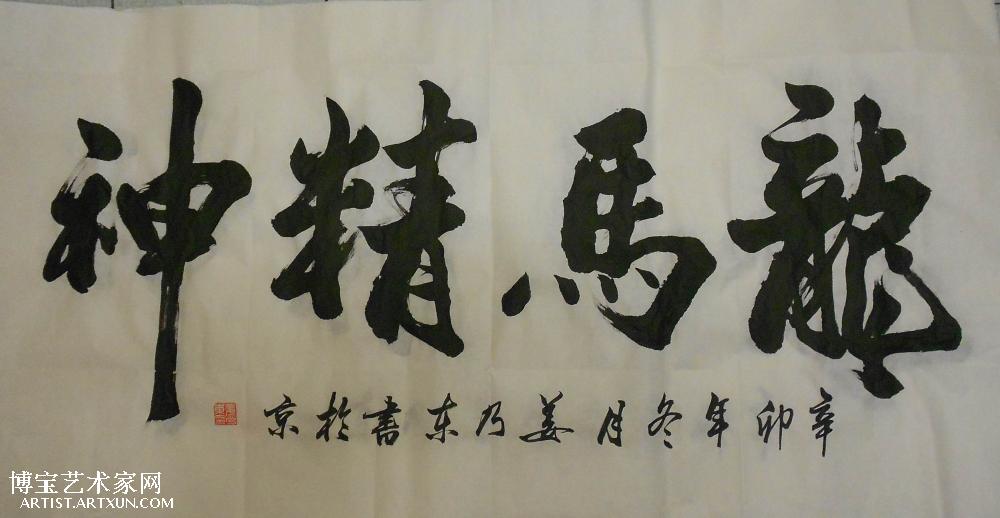 龍馬精神
辛卯年冬月姜乃东書於京
博宝艺术家网
ARTIST.ARTXUN.COM